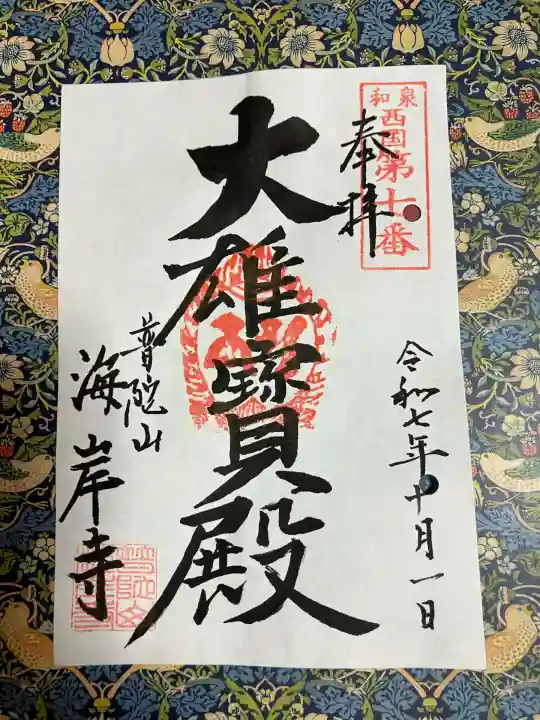 和泉
西国第十番
奉拝
大雄寳殿
普陀山
海岸寺
令和七年十月一日